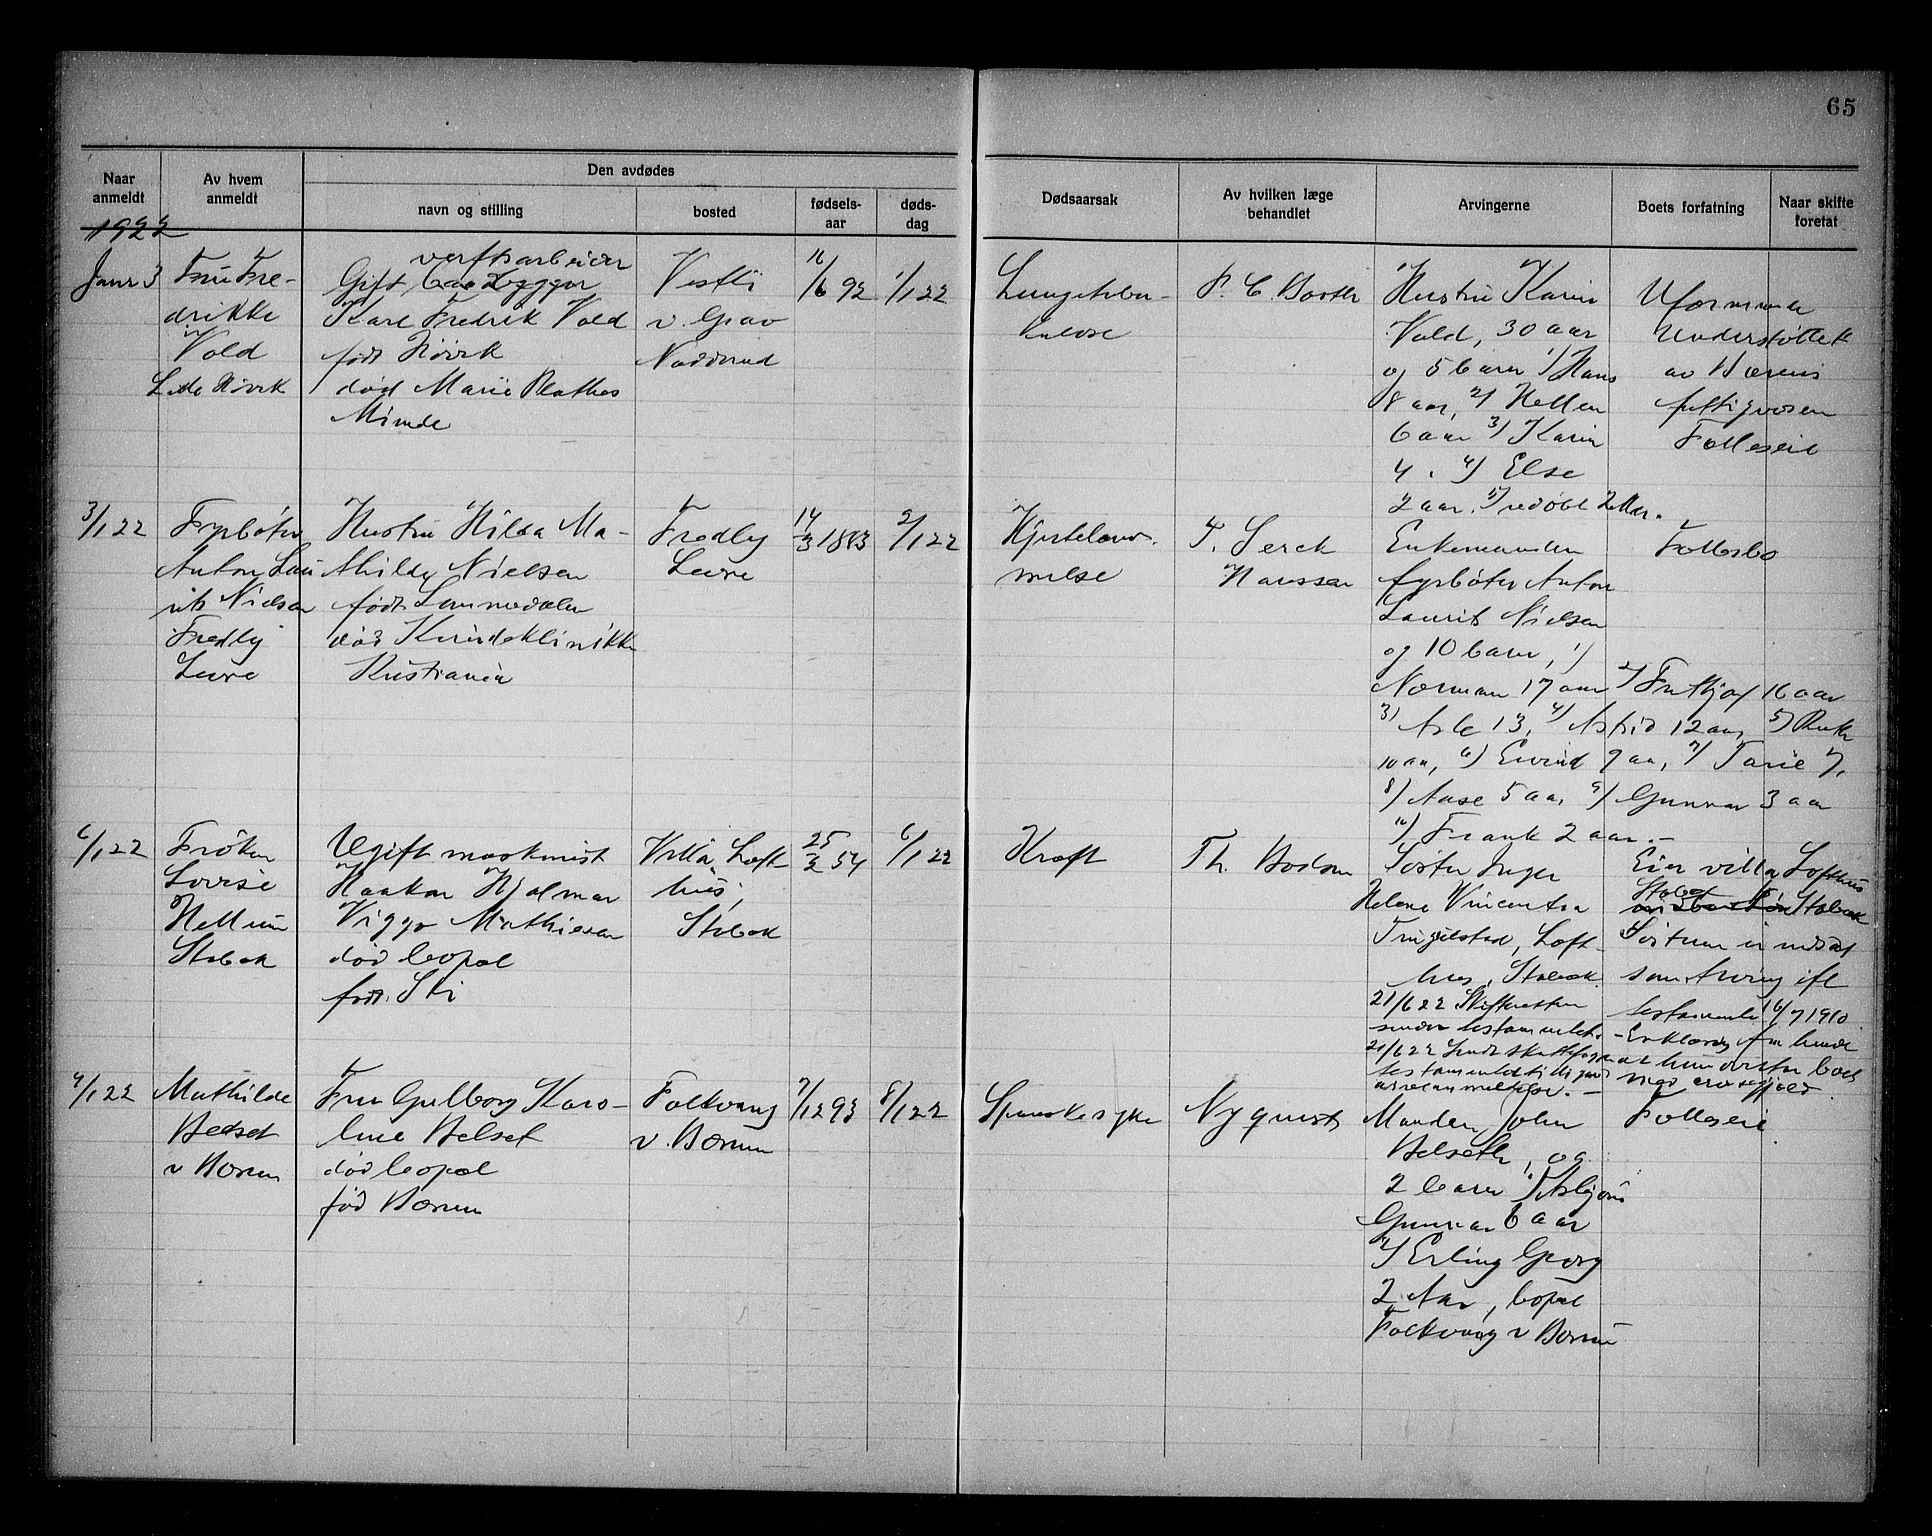 65
Naar anmeldt
Av hvem anmeldt
Den avdødes
navn og stilling
bosted
fødsels-aar
døds-dag
Dødsaarsak
Av hvilken læge behandlet
Arvingerne
Boets forfatning
Naar skifte foretat
1922
Janr 3
Fru Fre-
drikke
Vold
Høvik
verftsarbeider
Gift
Karl Fredrik Vold
født Høvik
død Marie Plathes
Minde
Vestli
v. Grav
Nadderud
16/6 92
1/1 22
Lungetuber-
kulose
P. C. Borth
Hustru Karin
Vold, 30 aar
og 5 barn 1) Hans
8 aar, 2) Hellen
6 aar 3) Karin
4. 4) Else
2 aar. 5) udøbt 2
Uformuende
Understøttet
av Bærums
fattigvæsen
Fælleseie
3/1 22
Fyrbøter
Anton Lau
rits Nielsen
Fredly
Leire
Hustru Hilda Ma-
thilde Nielsen
født Lommedalen
død Kvindeklinikken
Kristiania
Fredly
Leire
14/3 1883
2/1 22
Hjertelam-
melse
F. Serck
Hanssen
Enkemanden
fyrbøter Anton
Laurits Nielsen
og 10 barn, 1)
Norman 17 aar 2) Fritjof 16 aar
3) Asle 13, 4) Astrid 12 aar 5) Ruth
10 aar, 6) Eivind 9 aar, 7) Tarie 7,
8) Aase 5 aar 9) Gunnar 3 aar
10) Frank 2 aar. -
Fællesbo
6/1 22
Frøken
Lovise
Hellum
Stabæk
Ugift maskinist
Haakon Hjalmar
Viggo Mathiesen
død bopæl
født. Ski
Villa Loft-
hus,
Stabæk
25/2 54
6/1 22
Kræft
Th. Bodson
Søster Inger
Helene Vincentsa
Tingelstad, Loft-
hus, Stabæk.
21/6 22 Skifteretten
sender testamentet.
21/6 22 Sendt skattefogden
testamentet tilligemed
arveanmeldelse. -
Eier villa Lofthus
Stabæk
Søsteren er indsat
som Arving ifl
testamente 16/7 1910
- Erklæring fra hende
at hun overtar boet
med arv & gjæld.
9/1 22
Mathilde
Belset
v Bærum
Fru Gulborg Karo-
line Belset
død bopæl
fød Bærum
Folkvang
v. Bærum
7/12 93
8/1 22
Spanskesyke
Nyquist
Manden John
Belseth, og
2 barn 1) Asbjørn
Gunnar 6 aar
2) Erling Georg
2 Aar, bopæl
Folkvang v Bærum
Fælleseie.